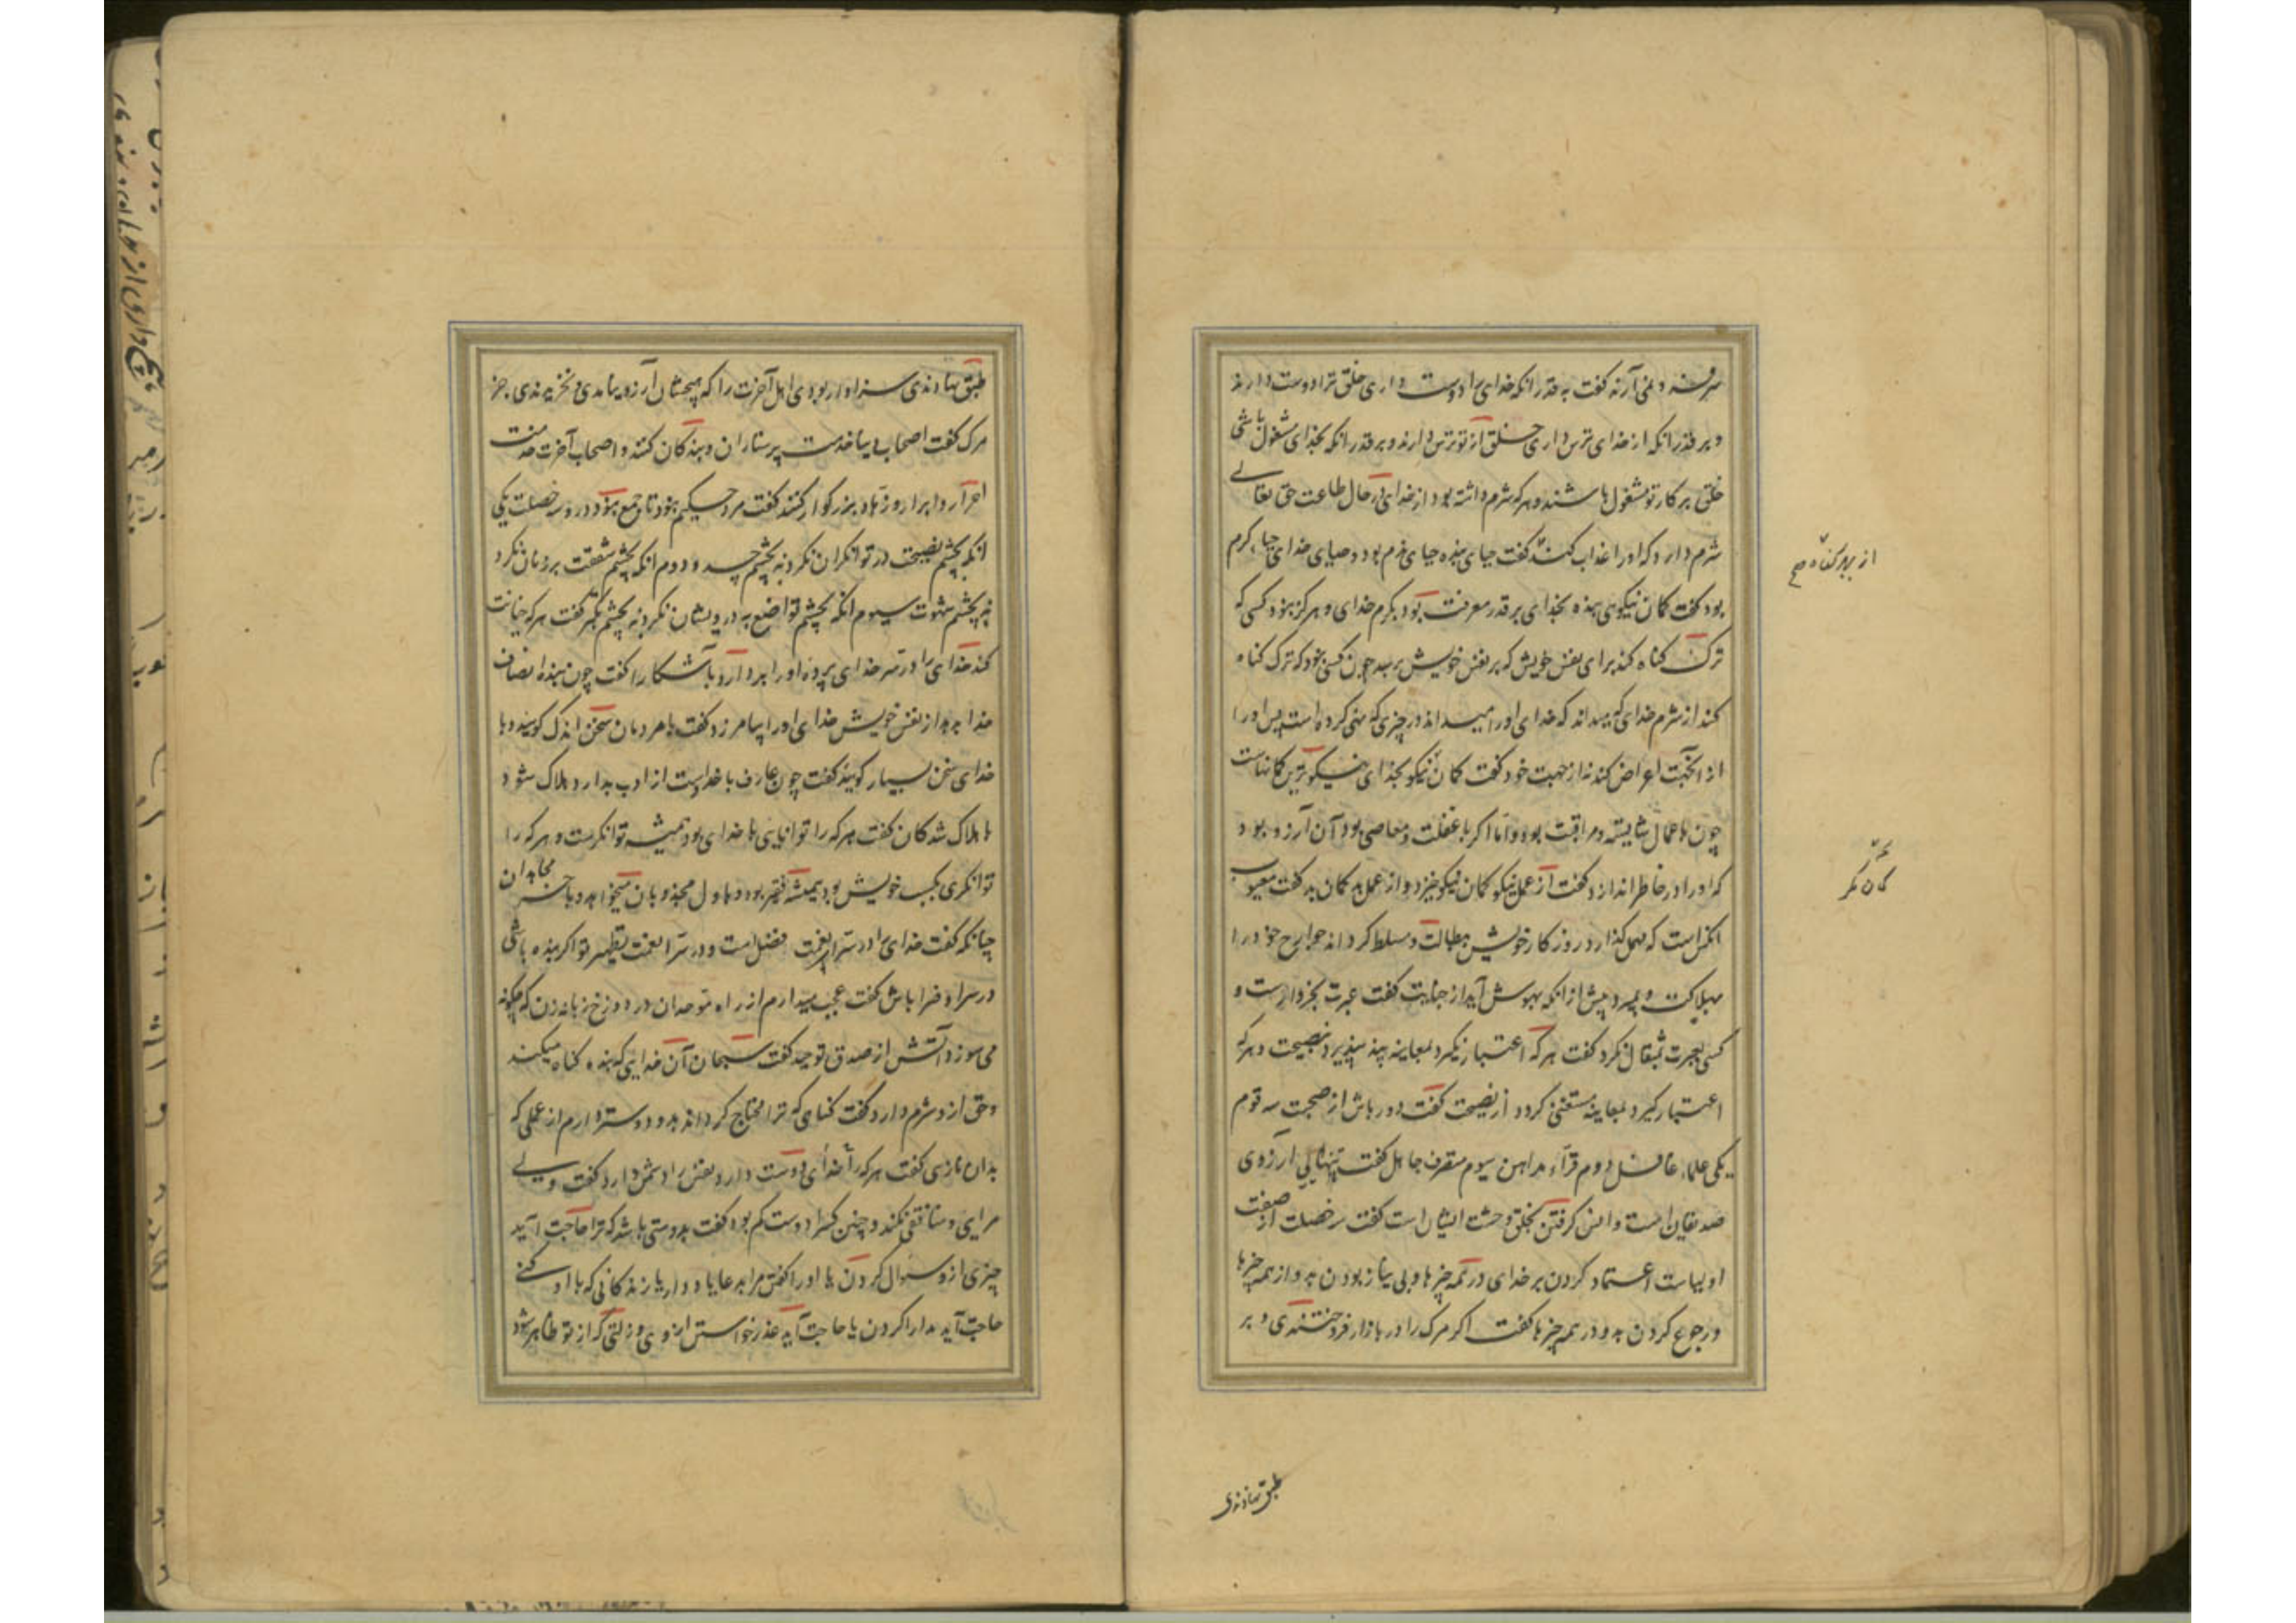 سرفه و غنی آرند گفت به قدر انکه خدای را دوست داری خلق ترا دوست دارند
و بر قدر انکه از خدای ترس داری خلق از تو ترس دارند و بر قدر انکه بخدای مشغول باشی
خلق بر کار تو مشغول باشند و هر که شرم داشته بود از خدای در حال طاعت حق تعالی
شرم دارد که او را عذاب کند گفت حیای بنده حیای ندم بود و حیای خدای حیاء کرم
بود گفت کمان نیکوی بنده بخدای بر قدر معرفت بود بکرم خدای و هرگز نبود کسی که
ترک کناه کند برای نفس خویش که بر نفس خویش برسد چون کسی بود که ترک کناه
کند از شرم خدای که میداند که خدای او را میبیند در چیزی که نهی کرده است پس او را
از انجهت اعراض کند نه از جهت خود گفت کمان نیکو بخدای نیکوترین کمانهاست
چون باعمال شایسته و مراقبت بود و اما اکر با غفلت و معاصی بود آن آرزو بود
که او را در خاطر اندازد گفت از عمل نیکو کمان نیکو خیزد و از عمل بد کمان بد گفت مغبون
انکس است که مهمل کذارد روزکار خویش ببطالت و مسلط کرداند جوارح خود را
بهلاکت و بمیرد پیش از انکه بهوش آید از جنایت گفت عبرت بخروار است و
کسی بعبرت بمثقال نکرد گفت هر که اعتبار نکیرد بمعاینه پند نپذیرد بنصیحت و هر که
اعتبار کیرد بمعاینه مستغنی کردد از نصیحت گفت دور باش از صحبت سه قوم
یکی علماء غافل دوم قرآء مداهن سیوم متصرف جاهل گفت تنهایی آرزوی
صدیقان است و انس کرفتن بخلق وحشت ایشان است گفت سه خصلت از صفت
اولیاست اعتماد کردن بر خدای در همه چیزها و بی نیاز بودن بدو از همه چیزها
و رجوع کردن بدو در همه چیزها گفت اکر مرک را در بازار فروختندی و بر
از بهر کناه صح
کمان مکر
طبق نهادندی
طبق نهادندی سزاوار بودی اهل آخرت را که هیچشان آرزو نیامدی و نخریدندی جز
مرک گفت اصحاب دنیا خدمت پرستاران و بندکان کنند و اصحاب آخرت خدمت
احرار و ابرار و زهاد بزرکوار کنند گفت مرد حکیم نبود تا جمع نبود در وسه خصلت یکی
انکه بچشم نصیحت در توانکران نکرد نه بچشم حسد و دوم انکه بچشم شفقت بر زنان نکرد
نه بچشم شهوت سیوم انکه بچشم تواضع به درویشان نکرد نه بچشم تکبر گفت هر که خیانت
کند خدای را در سر خدای پرده او را بردارد باشکارا گفت چون بنده انصاف
خدا بدهد از نفس خویش خدای او را بیامرزد گفت با مردمان سخن اندک کویید و با
خدای سخن بسیار کویید گفت چون عارف با خدا دست از ادب بدارد هلاک شود
با هلاک شدکان گفت هر که را توانایی با خدای بود همیشه توانکرست و هر که را
توانکری بکسب خویش بود همیشه فقیر بود و باول مجذوبان میخواهد و باخر مجاهدان
چنانکه گفت خدای را در سرا نعمت فضل است و در ضرا نعمت تطهیر تو اکر بنده باشی
در سرا و ضرا باش گفت عجب میدارم از راه توحدان در دوزخ زبانه زن که چکونه
می سوزد آتش از صدق توحید گفت سبحان آن خدایی که بنده کناه میکند
و حق ازو شرم دارد گفت کناهی که ترا محتاج کرداند بدو دوستر دارم از عملی که
بدان نازی گفت هر که را خدای دوست دارد نفس را دشمن دارد گفت ولی
مرایی و منافقی نکند و چنین کس را دوست کم بود گفت بد دوستی باشد که ترا حاجت آید
چیزی ازو سوال کردن یا او را گفتن مرا بدعا یاد دار یا زندکانی که با او کنی
حاجت آید مدارا کردن یا حاجت آید عذر خواستن ازو بی و زلتی که از تو ظاهر شود